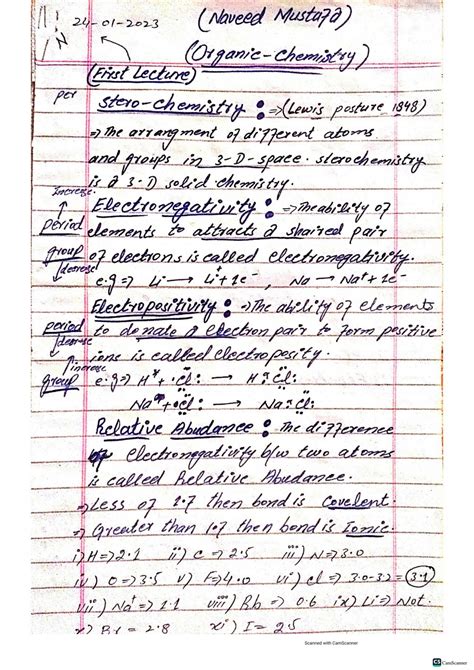 24-01-2023
(Naveed Mustafa)
(Organic-Chemistry)
(First Lecture)
per stero-chemistry : =>(Lewis posture 1848)
=> The arrangment of different atoms
and groups in 3-D-space. sterochemistry
is a 3-D solid chemistry.
Increase.
Electronegativity : => The ability of
period elements to attracts a shaired pair
group of electrons is called electronegativity.
decrese
e.g => Li → Li⁺ + 1e⁻, Na → Na⁺ + 1e⁻
Electropositivity : => The ability of elements
period to donate a electron pair to form positive
decrese ions is called electroposity.
increase
group e.g => H* + •Cl: → H:Cl:
Na* + •Cl: → Na:Cl:
Relative Abudance : The difference
electronegativity b/w two atoms
is called Relative Abudance.
=> Less of 1.7 then bond is Covelent.
=> Greater than 1.7 then bond is Ionic.
i) H => 2.1 ii) C = 2.5 iii) N => 3.0
iv) O => 3.5 v) F => 4.0 vi) Cl => 3.0-32 = 3.1
vii) Na⁺ => 1.1 viii) Rb => 0.6 ix) Li => Not.
x) Br = 2.8 xi) I = 2.5
Scanned with CamScanner
CS CamScanner